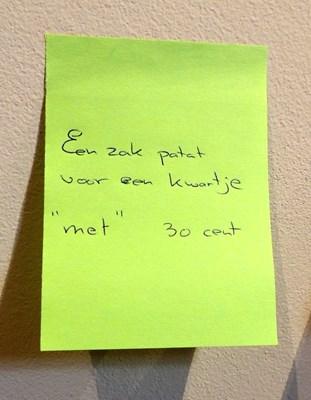 Een zak patat
voor een kwartje
"met" 30 cent